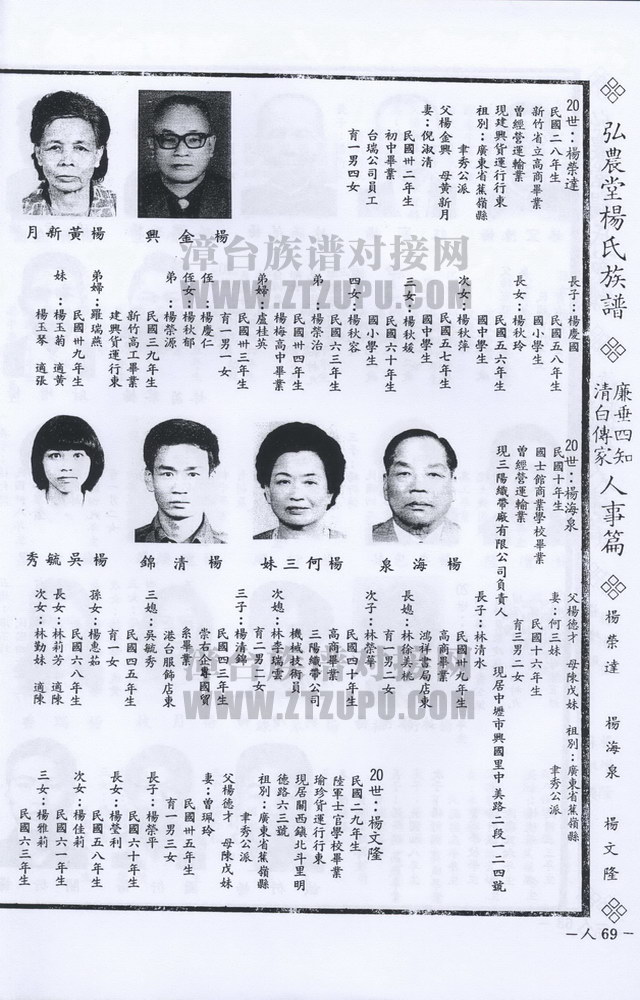 弘農堂楊氏族譜
廉垂四知
清白傳家
人事篇
楊榮達
楊海泉
楊文隆
人69
20世：楊榮達
民國二八年生
新竹省立高商畢業
曾經營運輸業
現建興貨運行行東
祖別：廣東省蕉嶺縣
韋秀公派
父楊金興 母黃新月
妻：倪淑清
民國卅二年生
初中畢業
台瑞公司員工
育一男四女
楊金興
楊黃新月
長子：楊慶國
民國五八年生
國小學生
長女：楊秋玲
民國五六年生
國中學生
次女：楊秋萍
民國五七年生
國中學生
三女：楊秋媛
民國六十年生
國小學生
四女：楊秋容
民國六三年生
弟：楊榮治
民國卅四年生
楊梅高中畢業
弟婦：盧桂英
民國卅三年生
育一男一女
侄：楊慶仁
侄女：楊秋郁
弟：楊榮源
民國三九年生
新竹高工畢業
建興貨運行東
弟婦：羅瑞燕
民國卅九年生
妹：楊玉菊 適黃
楊玉琴 適張
20世：楊海泉
民國十年生
國士館商業學校畢業
曾經營運輸業
現三陽織帶廠有限公司負責人
現居中壢市興國里中美路二段一二四號
父楊德才 母陳戊妹 祖別：廣東省蕉嶺縣
韋秀公派
妻：何三妹
民國十六年生
育三男二女
楊海泉
楊何三妹
楊清錦
楊吳毓秀
長子：林清水
民國卅九年生
高商畢業
鴻祥書局店東
長媳：林徐美桃
育一男二女
次子：林榮華
民國四十年生
高商畢業
三陽織帶公司
機械技術員
次媳：林李瑞雲
育二男二女
三子：楊清錦
民國四三年生
崇右企專國貿
系畢業
港台服飾店東
三媳：吳毓秀
民國四五年生
育一女
孫女：楊惠茹
民國六八年生
長女：林莉芳 適陳
次女：林勤妹 適陳
20世：楊文隆
民國二九年生
陸軍士官學校畢業
瑜珍貨運行行東
現居關西鎮北斗里明
德路六三號
祖別：廣東省蕉嶺縣
韋秀公派
父楊德才 母陳戊妹
妻：曾珮玲
育一男三女
長子：楊榮平
民國六十年生
長女：楊瑩利
民國五八年生
次女：楊佳莉
民國六一年生
三女：楊雅莉
民國六三年生
漳台族谱对接网
WWW.ZTZUPU.COM
漳台族谱对接网
WWW.ZTZUPU.COM